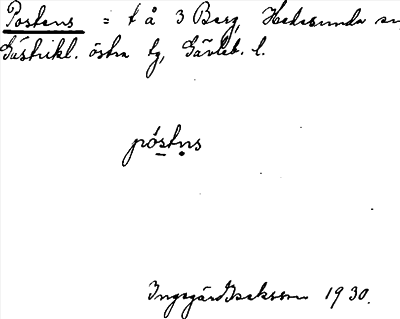 Postens = t å 3 Berg, Hedesunda sn,
Gästrikl. östra tg, Gävleb. l.
póstns
Ingegärd Isaksson 1930.